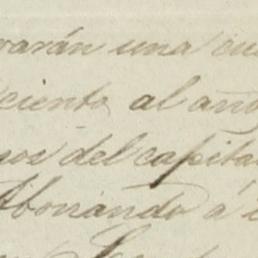 varán una cu
ciento al año
sos del capita
Abonando á